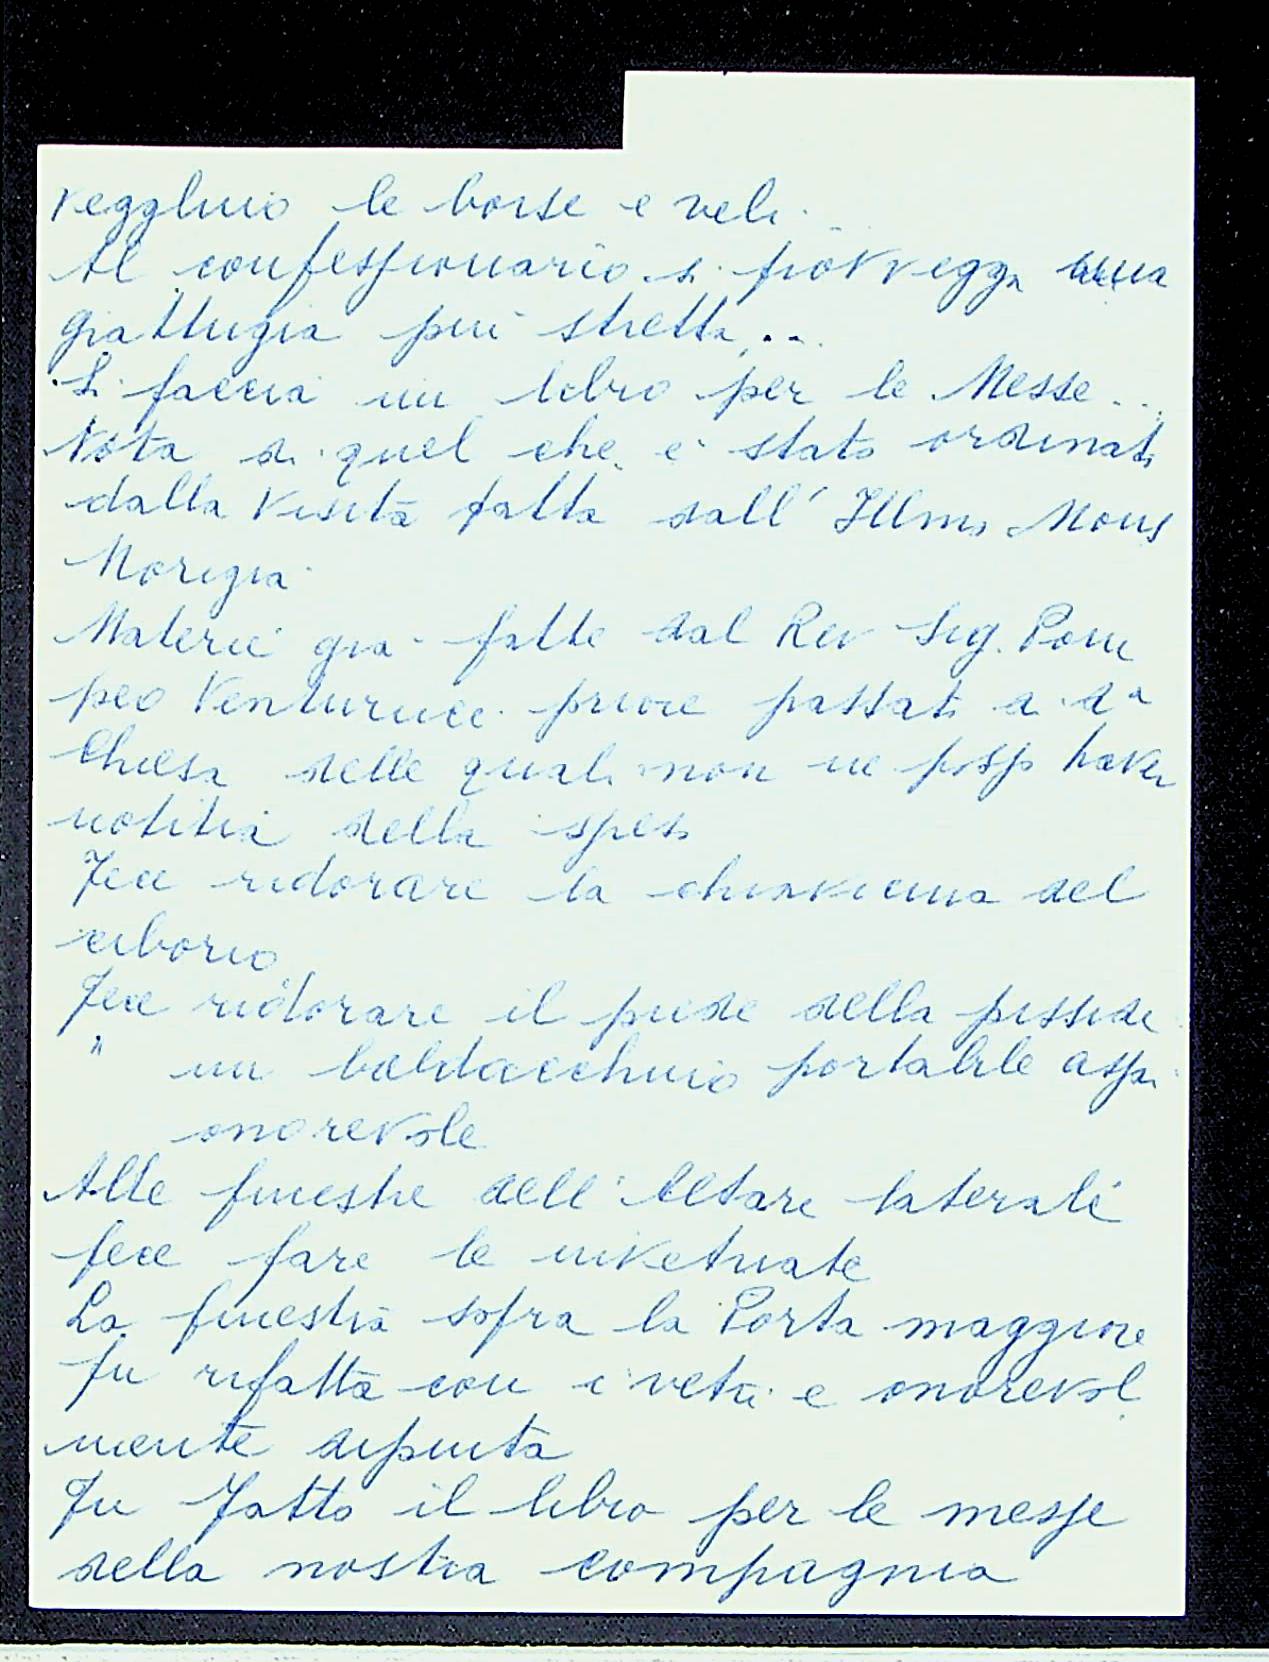 vegghino le borse e veli.
Al confessionario si provvegga una
grattugia più stretta...
Si faccia un libro per le Messe...
Nota di quel che è stato ordinato
dalla Visita fatta dall' Illmo Mons
Morigia
Materie già fatte dal Rev Sig. Pom
peo Venturucci priore passato di da
Chiesa delle quali non ne posso haver
notitia della spesa
Fece ridorare la chiavicina del
ciborio
Fece ridorare il piede della pisside
" un baldacchino portabile assai
onorevole
Alle finestre dell' Altare laterali
fece fare le invetriate
La finestra sopra la Porta maggiore
fu rifatta con i vetri e onorevol
mente dipinta
Fu fatto il libro per le messe
della nostra compagnia